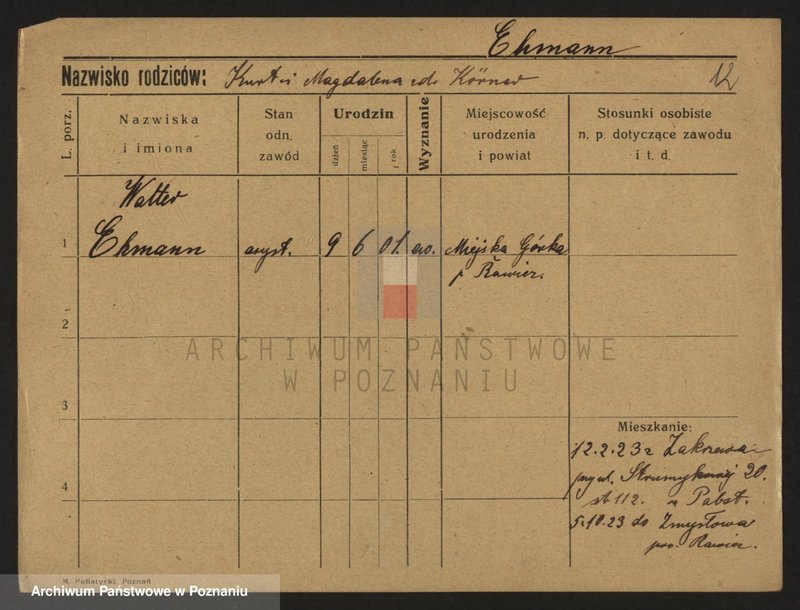 Ehmann
Nazwisko rodziców: Kurt i Magdalena zd. 12
L. porz.
Nazwiska
i imiona
Stan
odn.
zawód
Urodzin
dzień
miesiąc
rok
Wyznanie
Miejscowość
urodzenia
i powiat
Stosunki osobiste
n. p. dotyczące zawodu
i t. d.
Walter
1 Ehmann asyst. 9 6 01. ew. Miejska Górka
p. Rawicz.
2
ARCHIWUM PAŃSTWOWE
W POZNANIU
3
Mieszkanie:
12.2.23 z Zakrzewa
przy ul. 20.
4
st. 112. u Pabst.
5.10.23 do Zmysłowa
pow. Rawicz.
M. Putiatycki, Poznań
Archiwum Państwowe w Poznaniu